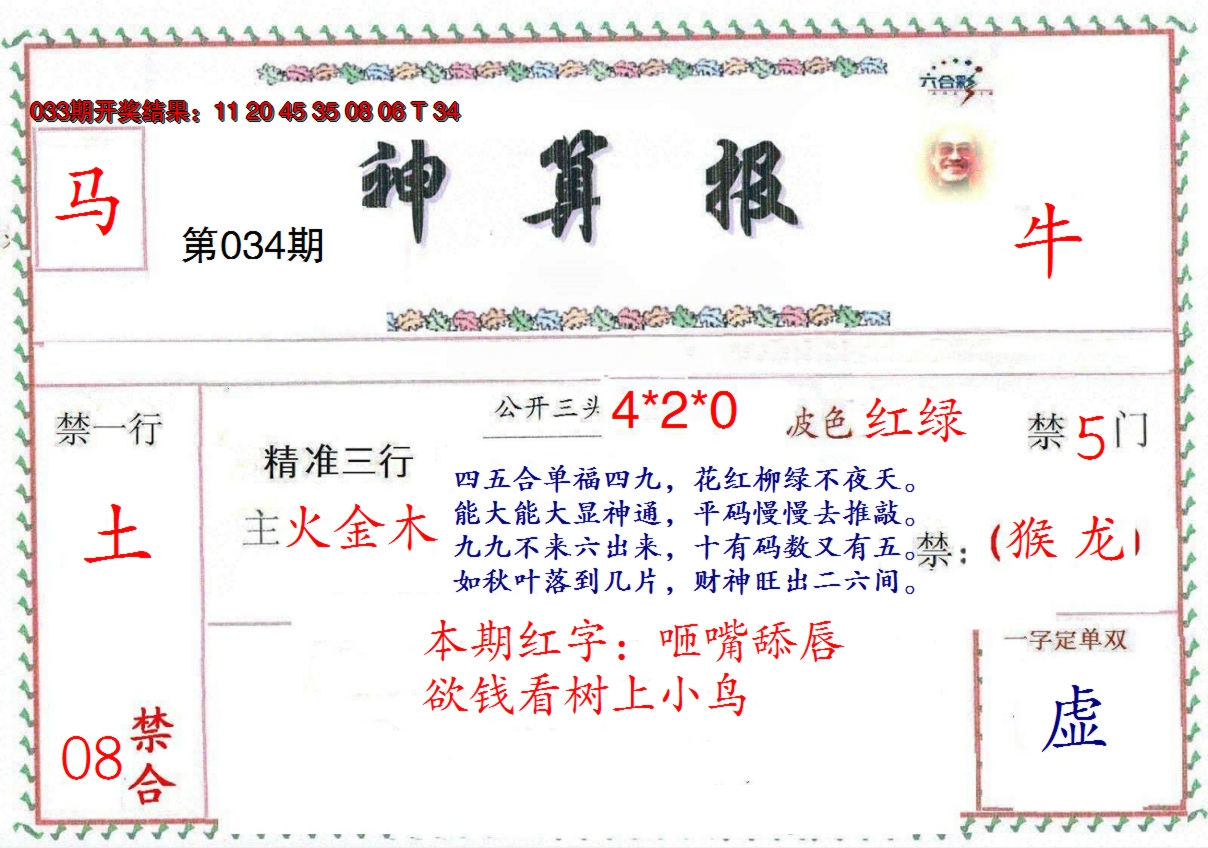 六合彩
033期开奖结果：11 20 45 35 08 06 T 34
马
神算报
第034期
牛
禁一行
土
08
禁合
公开三头
4*2*0
波色 红绿
禁5门
精准三行
主火金木
四五合单福四九，花红柳绿不夜天。
能大能大显神通，平码慢慢去推敲。
九九不来六出来，十有码数又有五。
如秋叶落到几片，财神旺出二六间。
禁：（猴 龙）
本期红字：咂嘴舔唇
欲钱看树上小鸟
一字定单双
虚